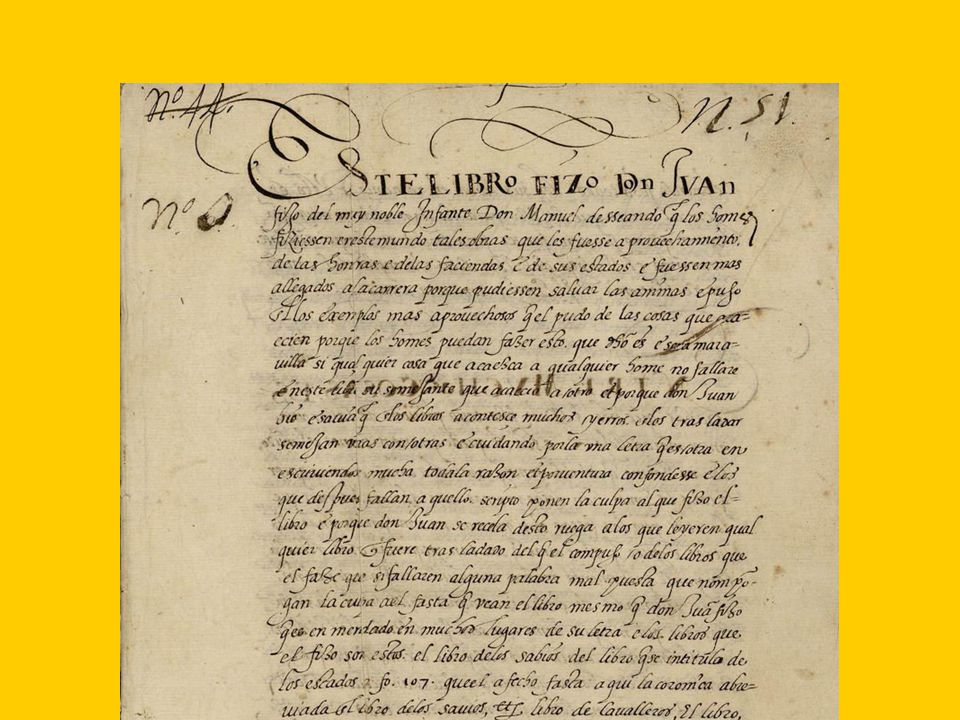 Nº 44.
N. 51.
Nº 8.
ESTE LIBRO FIZO Don IVAn
fijo del muy noble Infante Don Manuel desseando q̃ los homes
fiziessen en este mundo tales obras que les fuesse a prouechamiento.
de las honras e de las faciendas e de sus estados e fuessen mas
allegados a la carrera porque pudiessen saluar las animas e puso
los exemplos mas aprouechosos q̃ el pudo de las cosas que aca-
ecien porque los homes puedan fazer esto. que es e sera mara-
uilla si qual quier cosa que acaezca a qualquier home no fallare
en este su semejante que acaecio a otro et porque don Iuan
los libros acontesce muchos yerros los tras ladar
semejan unas con otras e cuidando por la una letra q̃ es otra en
escriuiendo mucha toda la razon et por uentura confondesse e los
que despues fallan aquello scripto ponen la culpa al que fizo el-
libro e porque don Iuan se recela desto ruega a los que leyeren qual
quier libro fuere tras ladado del q̃ el compuso o de los libros que
el faze que si fallaren alguna palabra mal puesta que non pon-
gan la culpa a el fasta q̃ vean el libro mesmo q̃ don Iuã fizo
emendado en muchos lugares de su letra e los libros que
el fizo son estos. el libro de los sabios del libro q̃ se intitula de
los estados fo. 107. que el a fecho fasta aqui la coronica abre-
uiada el libro de los sauios, libro de caualleros, El libro,